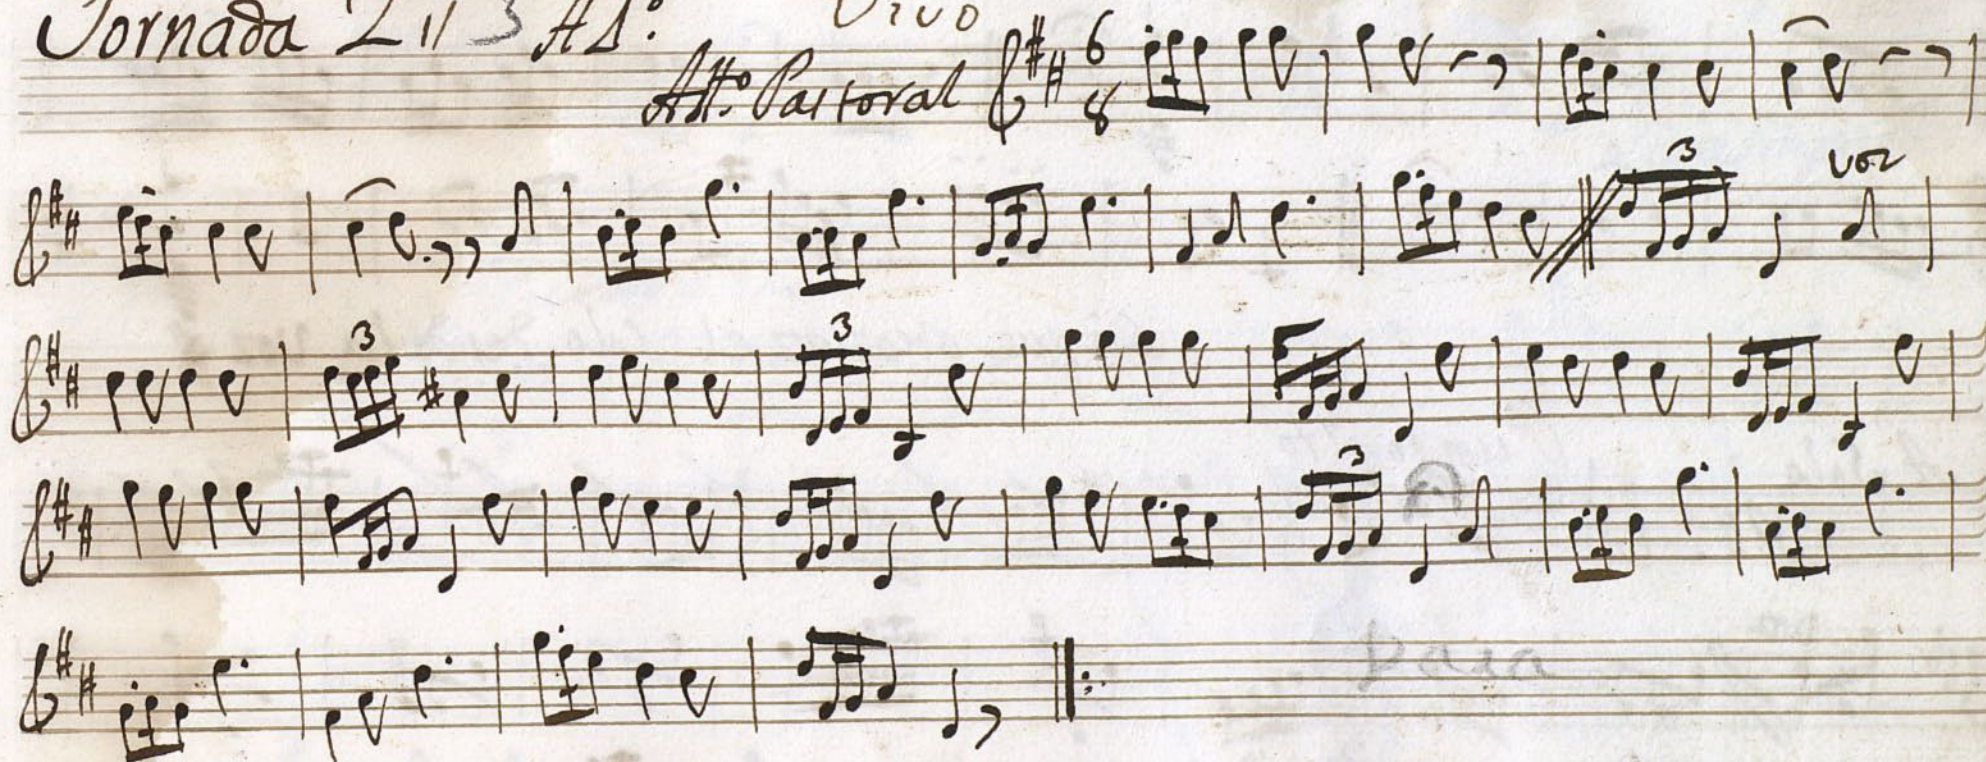 Jornada 2ª 3 A1º. Vivo
Allº. Pastoral 6 8
3 voz
3 3
3